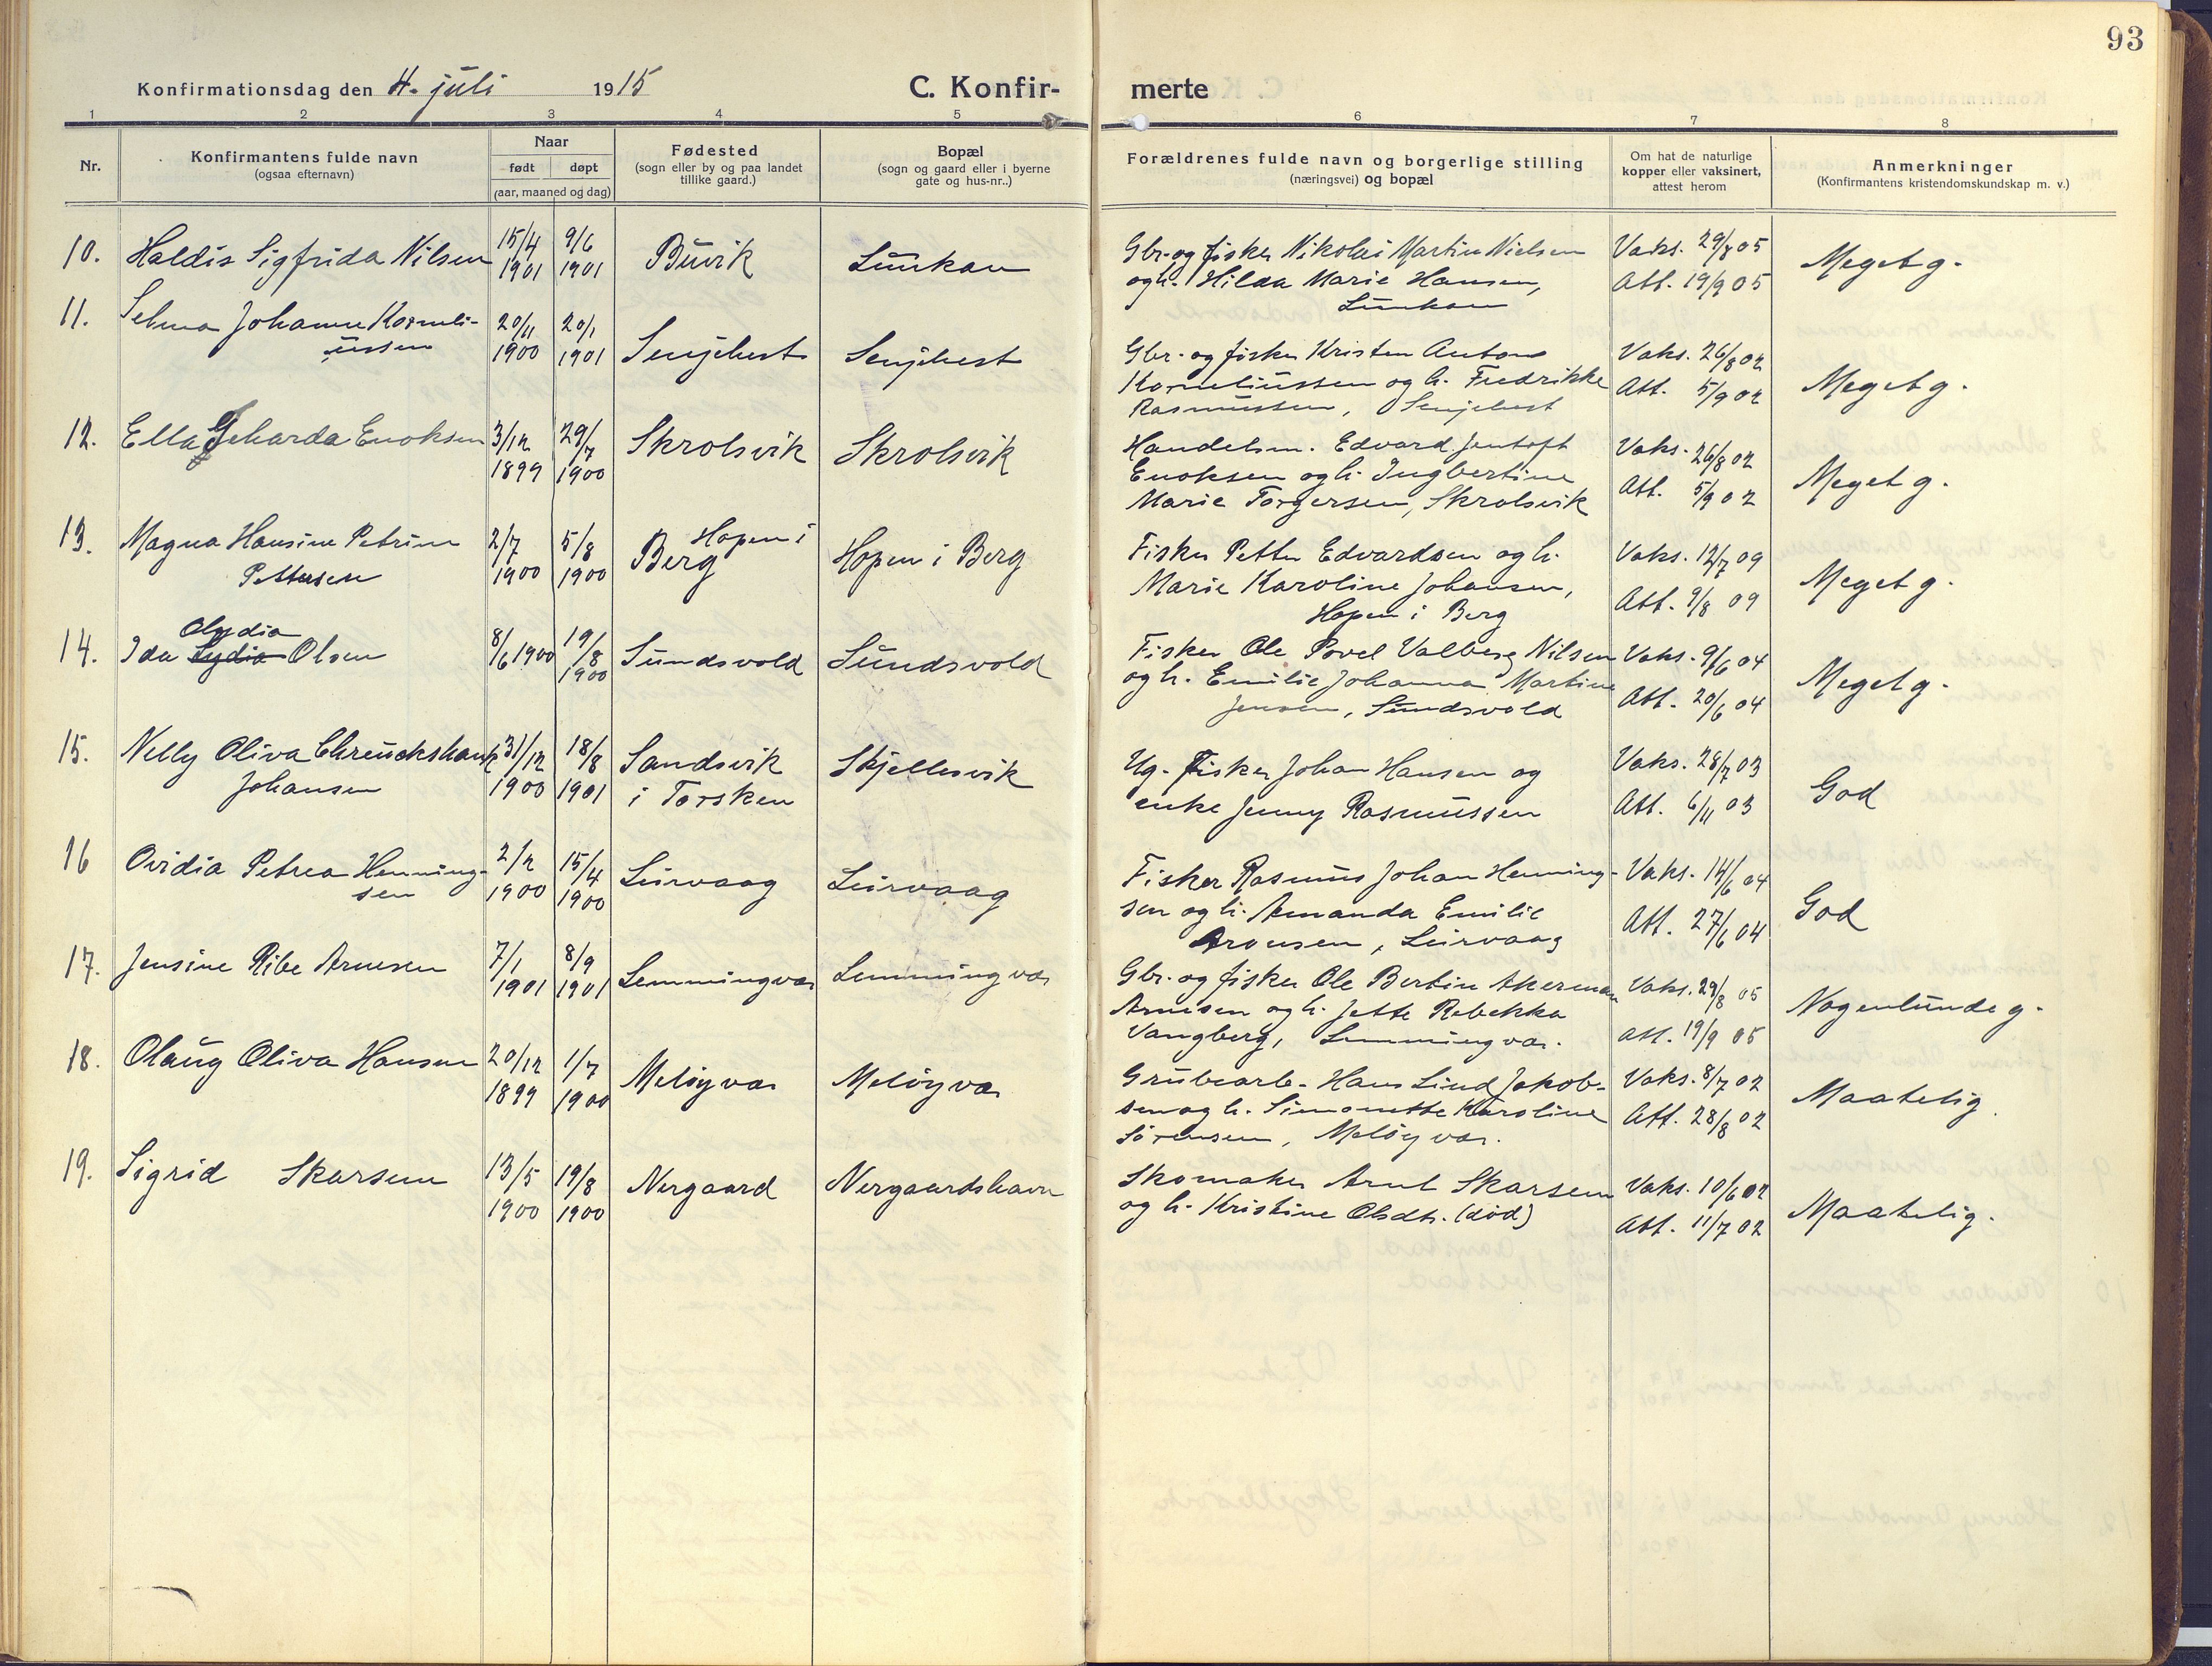 93
Konfirmationsdag den 4. juli 1915
C. Konfir-
merte
1 2 3 4 5 6 7 8
Nr.
Konfirmantens fulde navn
(ogsaa efternavn)
Naar
født døpt
(aar, maaned og dag)
Fødested
(sogn eller by og paa landet
tillike gaard.)
Bopæl
(sogn og gaard eller i byerne
gate og hus-nr..)
Forældrenes fulde navn og borgerlige stilling
(næringsvei) og bopæl
Om hat de naturlige
kopper eller vaksinert,
attest herom
Anmerkninger
(Konfirmantens kristendomskundskap m. v.)
10. Haldis Sigfrida Nilsen
15/4 1901
9/6 1901
Buvik
Lunkan
Gbr. og fisker Nikolai Martin Nielsen
og h. Hilda Marie Hansen,
Lunkan
Vaks. 29/8 05
Att. 19/9 05
Meget g.
11. Selma Johanne Korneli-
ussen
20/11 1900
20/1 1901
Senjehest
Senjehest
Gbr. og fisker Kristen Anton
Korneliussen og h. Fredrikke
Rasmussen, Senjehest
Vaks. 26/8 02
Att. 5/9 02
Meget g.
12. Ella Geharda Enoksen
3/12 1899
29/7 1900
Skrolsvik
Skrolsvik
Handelsm. Edvard Jentoft
Enoksen og h. Ingbertine
Marie Torgersen, Skrolsvik
Vaks. 26/8 02
Att. 5/9 02
Meget g.
13. Magna Hansine Petrine
Pettersen
2/7 1900
5/8 1900
Hopen i
Berg
Hopen i Berg
Fisker Petter Edvardsen og h.
Marie Karoline Johansen,
Hopen i Berg
Vaks. 12/7 09
Att. 9/8 09
Meget g.
Olydia
14. Ida Lydia Olsen
8/6 1900
19/8 1900
Sundsvold
Sundsvold
Fisker Ole Povel Valberg Nilsen
og h. Emilie Johanna Martine
Jensen, Sundsvold
Vaks. 9/6 04
Att. 20/6 04
Meget g.
15. Nelly Oliva Chreuckshank
Johansen
31/12 1900
18/8 1901
Sandsvik
i Torsken
Skjellesvik
Ug. Fisker Johan Hansen og
enke Jenny Rasmussen
Vaks. 28/7 03
Att. 6/11 03
God
16 Ovidia Petrea Henning-
sen
2/2 1900
15/4 1900
Leirvaag
Leirvaag
Fisker Rasmus Johan Henning-
sen og h. Amanda Emilie
Aronsen, Leirvaag
Vaks. 14/6 04
Att. 27/6 04
God
17. Jensine Ribe Arnesen
7/1 1901
8/9 1901
Lemmingvær
Lemmingvær
Gbr. og fisker Ole Bertin Akerman
Arnesen og h. Jette Rebekka
Vangberg, Lemmingvær.
Vaks. 29/8 05
Att. 19/9 05
Nogenlunde g.
18. Olaug Oliva Hansen
20/12 1899
1/7 1900
Meløyvær
Meløyvær
Grubearb. Hans Lind Jakob-
sen og h. Simonette Karoline
Sørensen, Meløyvær.
Vaks. 8/7 02
Att. 28/8 02
Maatelig.
19. Sigrid Skarsem
13/5 1900
19/8 1900
Nergaard
Nergaardshavn
Skomaker Arnt Skarsem
og h. Kristine Olsdtr. (død)
Vaks. 10/6 02
Att. 11/7 02
Maatelig.